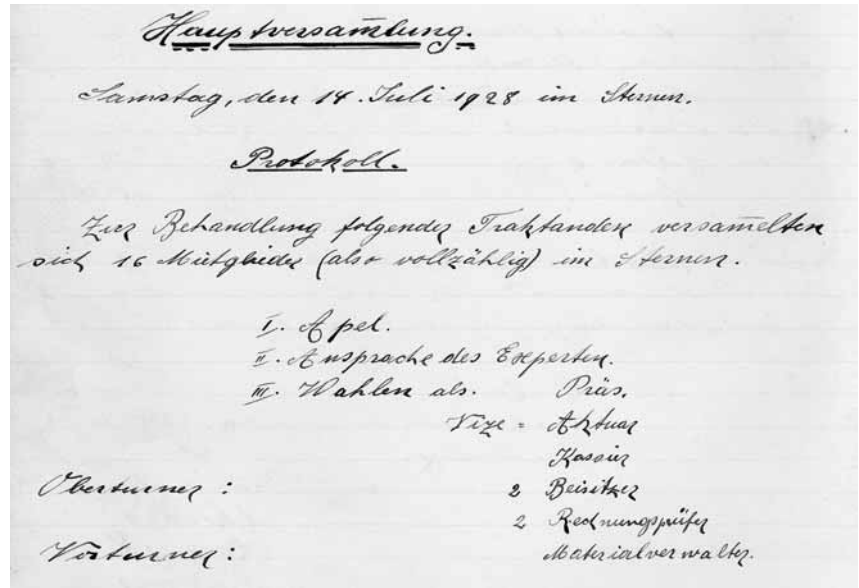 Hauptversam̅lung.
Samstag, den 14. Juli 1928 im Sternen.
Protokoll.
Zur Behandlung folgender Traktanden versam̅elten
sich 16 Mietglieder (also vollzählig) im Sternen.
I. Apel.
II. Ansprache des Experten.
III. Wahlen als. Präs.
Vize = Aktuar
Kassier
Oberturner : 2 Beisitzer
2 Rechnungsprüfer
Vorturner : Materialverwalter.